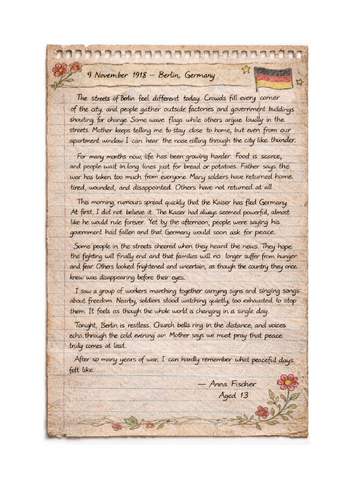 9 November 1918 – Berlin, Germany
The streets of Berlin feel different today. Crowds fill every corner
of the city, and people gather outside factories and government buildings
shouting for change. Some wave flags while others argue loudly in the
streets. Mother keeps telling me to stay close to home, but even from our
apartment window I can hear the noise rolling through the city like thunder.
For many months now, life has been growing harder. Food is scarce,
and people wait in long lines just for bread or potatoes. Father says the
war has taken too much from everyone. Many soldiers have returned home
tired, wounded, and disappointed. Others have not returned at all.
This morning, rumours spread quickly that the Kaiser has fled Germany.
At first, I did not believe it. The Kaiser had always seemed powerful, almost
like he would rule forever. Yet by the afternoon, people were saying his
government had fallen and that Germany would soon ask for peace.
Some people in the streets cheered when they heard the news. They hope
the fighting will finally end and that families will no longer suffer from hunger
and fear. Others looked frightened and uncertain, as though the country they once
knew was disappearing before their eyes.
I saw a group of workers marching together carrying signs and singing songs
about freedom. Nearby, soldiers stood watching quietly, too exhausted to stop
them. It feels as though the whole world is changing in a single day.
Tonight, Berlin is restless. Church bells ring in the distance, and voices
echo through the cold evening air. Mother says we must pray that peace
truly comes at last.
After so many years of war, I can hardly remember what peaceful days
felt like.
— Anna Fischer
Aged 13